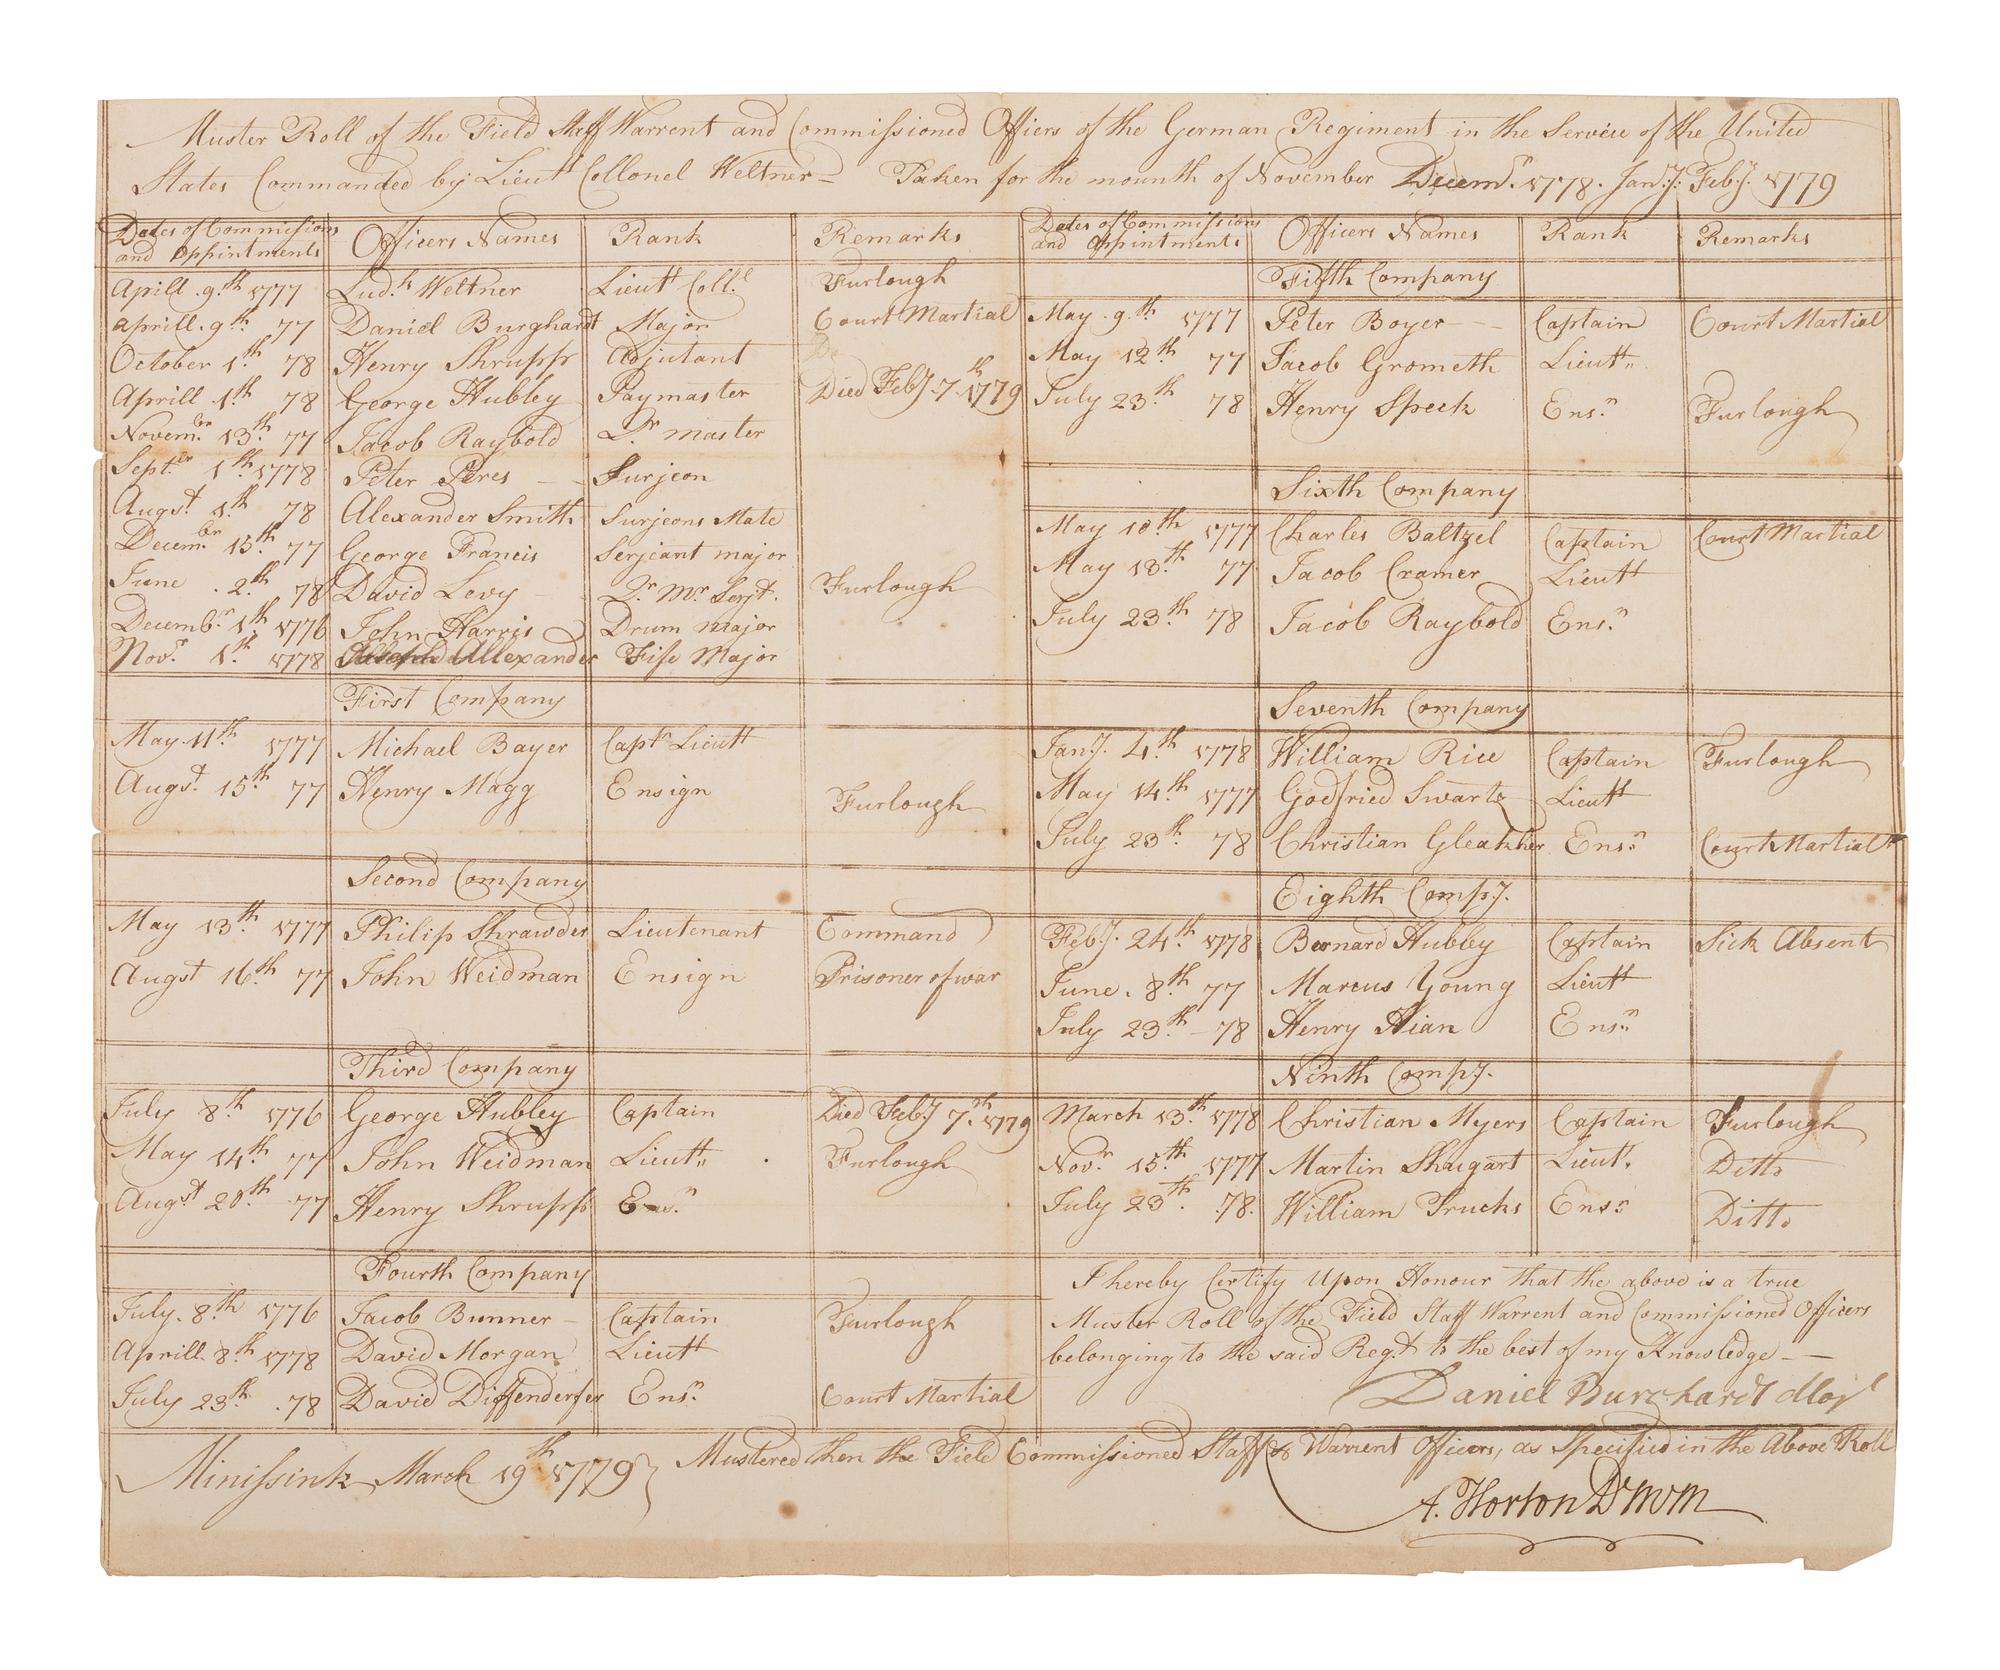 Muster Roll of the Field Staff Warrent and Commissioned Officers of the German Regiment in the Service of the United
States Commanded by Lieut Collonel Weltner Taken for the mounth of November Decemr. 1778. Jany. Feby. 1779
Dates of Commissions and Appintments Officers Names Rank Remarks
Aprill 9th 1777 Ludk Weltner Lieutt Coll.l Furlough
Aprill 9th 77 Daniel Burghardt Major Court Martial
October 1th 78 Henry Shrupp Adjutant
Aprill 1th 78 George Hubley Paymaster Died Feby 7th 1779
Novembr 13th 77 Jacob Raybold Qr master
Septer 1th 1778 Peter Peres Surjeon
Augst 1th 78 Alexander Smith Surjeons Mate
Decembr 15th 77 George Francis Serjeant major
June 2th 78 David Levy Qr Mr Serjt. Furlough
Decembr 1th 1776 John Harris Drum major
Novr 1th 1778 Allexander Fife Major
First Company
May 11th 1777 Michael Bayer Captn Lieutt
Augst 15th 77 Henry Magg Ensign Furlough
Second Company
May 13th 1777 Philip Shrawder Lieutenant Command
Augst 16th 77 John Weidman Ensign Prisoner of war
Third Company
July 8th 1776 George Hubley Captain Died Feby 7th 1779
May 14th 77 John Weidman Lieutt Furlough
Augst 20th 77 Henry Shrupp Ensn
Fourth Company
July 8th 1776 Jacob Bunner Captain Furlough
Aprill 8th 1778 David Morgan Lieutt
July 23th 78 David Diffenderfer Ensn Court Martial
Dates of Commissions and Appintments Officers Names Rank Remarks
Fifth Company
May 9th 1777 Peter Boyer Captain Court Martial
May 12th 77 Jacob Grometh Lieutt
July 23th 78 Henry Speck Ensn Furlough
Sixth Company
May 10th 1777 Charles Baltzel Captain Court Martial
May 13th 77 Jacob Cramer Lieutt
July 23th 78 Jacob Raybold Ensn
Seventh Company
Jany. 4th 1778 William Rice Captain Furlough
May 14th 1777 Godfried Swartz Lieutt
July 23th 78 Christian Gleatcher Ensn Court Martial
Eighth Compy.
Feby. 24th 1778 Bernard Hubley Captain Sick Absent
June 8th 77 Marcus Young Lieutt
July 23th 78 Henry Hian Ensn
Ninth Compy.
March 13th 1778 Christian Myers Captain Furlough
Novr 15th 1777 Martin Shugart Lieut. Ditto
July 23th 78. William Trucks Ensn Ditto
I hereby Certify Upon Honour that the above is a true
Muster Roll of the Field Staff Warrent and Commissioned Officers
belonging to the said Regt. to the best of my Knowledge
Daniel Burchardt Mojr
Minissink March 19th 1779 } Mustered then the Field Commissioned Staff & Warrent Officers, as Specified in the Above Roll
A. Horton D M M